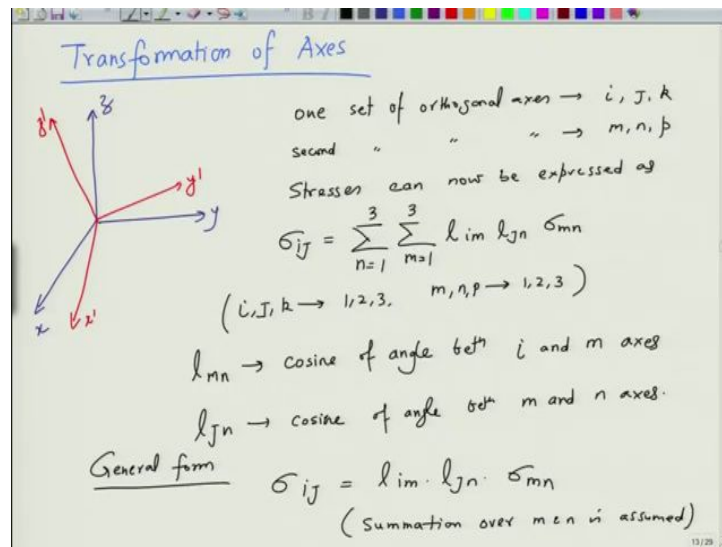 Transformation of Axes
z
z'
y'
y
x
x'
one set of orthogonal axes → i, J, k
second " " " → m, n, p
Stresses can now be expressed as
σiJ = Σ(n=1 to 3) Σ(m=1 to 3) lim lJn σmn
(i, J, k → 1, 2, 3. m, n, p → 1, 2, 3)
lmn → cosine of angle betn i and m axes
lJn → cosine of angle betn m and n axes.
General form σiJ = lim · lJn · σmn
(Summation over m & n is assumed)
13/29